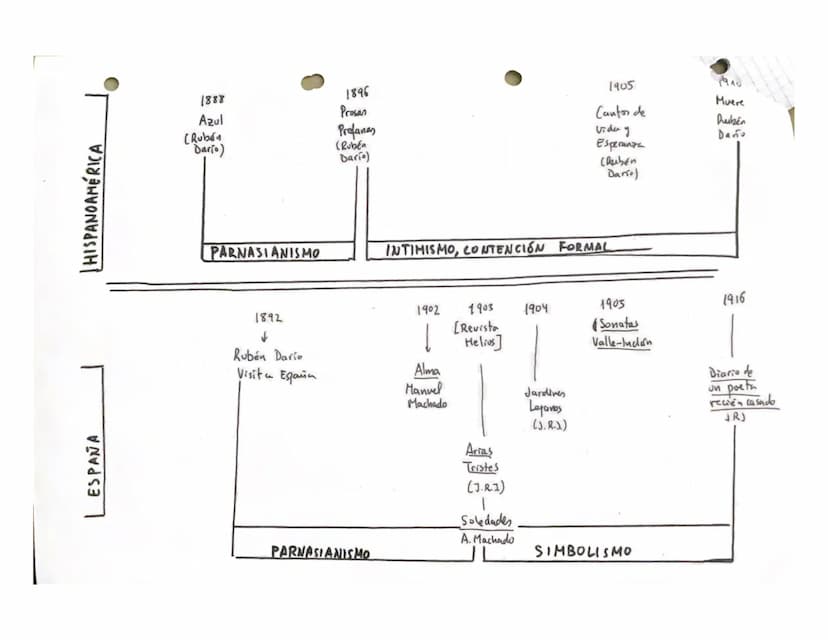 HISPANOAMÉRICA
1888
Azul
(Rubén
Darío)
1896
Prosas
Profanas
(Rubén
Darío)
1905
Cantos de
vida y
Esperanza
(Rubén
Darío)
Muere
Rubén
Darío
PARNASIANISMO
INTIMISMO, CONTENCIÓN FORMAL
ESPAÑA
1892
Rubén Darío
Visita España
1902
Alma
Manuel
Machado
1903
[Revista
Helios]
Arias
Tristes
(J.R.J)
Soledades
A. Machado
1904
Jardines
Lejanos
(J.R.J)
1905
(Sonatas
Valle-Inclán
1916
Diario de
un poeta
recién casado
JRJ
PARNASIANISMO
SIMBOLISMO